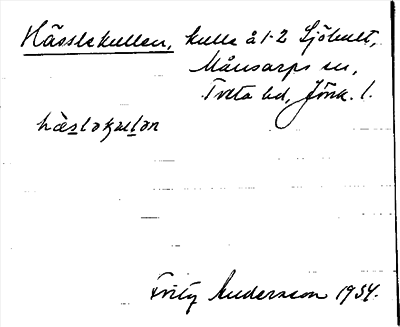 Hässlekullen, kulle å 1-2 Sjöhult,
Månsarps sn,
Tveta hd, Jönk. l.
hàslakullan
Fritz Andersson 1934.